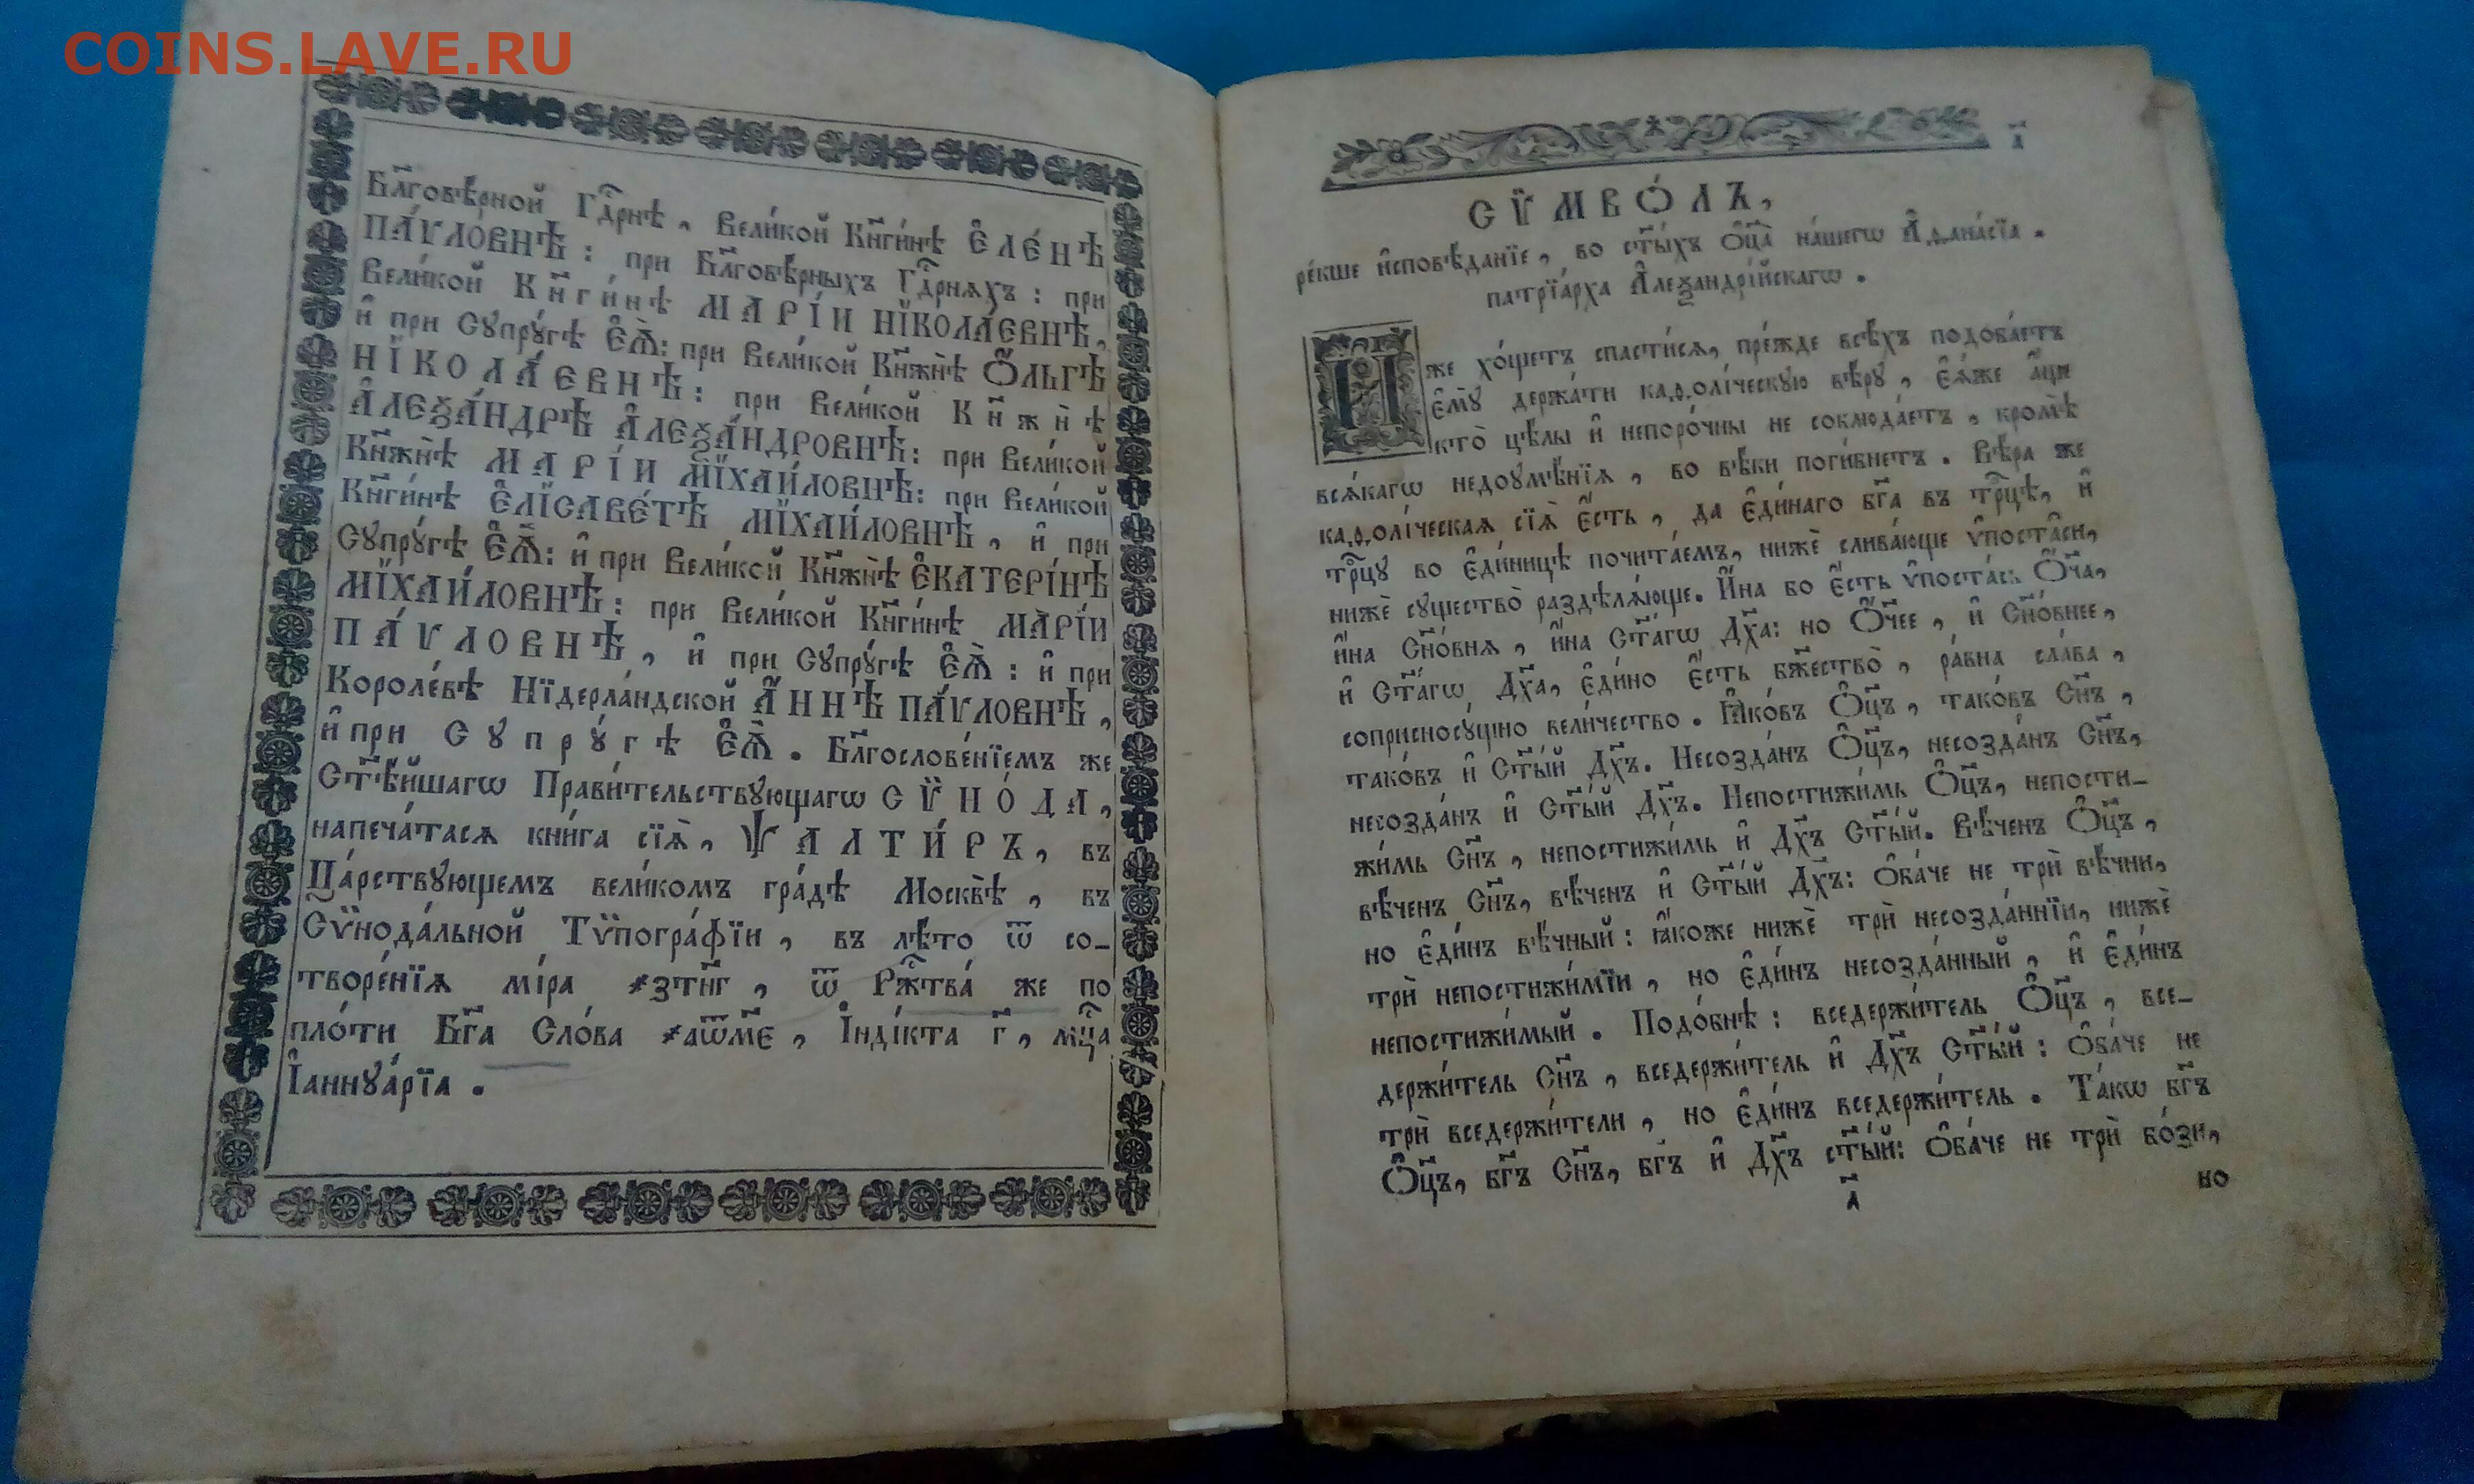 COINS.LAVE.RU
Бл҃говѣ́рной Гд҃рнѣ, Вели́кой Кн҃ги́нѣ Є҆ЛЕ́НѢ
ПА́ѴЛОВНѢ: при Бл҃говѣ́рныхъ Гд҃рняхъ: при
Вели́кой Кн҃ги́нѣ МАРІ́И НЇКОЛА́ЕВНѢ,
и҆ при Сꙋпрꙋ́гѣ Є҆Ѧ̀: при Вели́кой Кн҃жнѣ̀ Ѻ҆́ЛЬГѢ
НЇКОЛА́ЕВНѢ: при Вели́кой Кн҃жнѣ̀
А҆ЛЕѮА́НДРѢ А҆ЛЕѮА́НДРОВНѢ: при Вели́кой
Кн҃жнѣ̀ МАРІ́И МЇХАИ́ЛОВНѢ: при Вели́кой
Кн҃ги́нѣ Є҆ЛЇСАВЕ́ТѢ МЇХАИ́ЛОВНѢ, и҆ при
Сꙋпрꙋ́гѣ Є҆Ѧ̀: и҆ при Вели́кой Кн҃жнѣ̀ Є҆КАТЕРІ́НѢ
МЇХАИ́ЛОВНѢ: при Вели́кой Кн҃ги́нѣ МАРІ́И
ПА́ѴЛОВНѢ, и҆ при Сꙋпрꙋ́гѣ Є҆Ѧ̀: и҆ при
Короле́вѣ Нїдерла́ндской А҆́ННѢ ПА́ѴЛОВНѢ,
и҆ при Сꙋпрꙋ́гѣ Є҆Ѧ̀. Бл҃гослове́нїемъ же
Ст҃ѣ́йшагѡ Прави́тельствꙋющагѡ СѴ̈НО́ДА,
напеча́тася кни́га сїѧ̀, ѰАЛТИ́РЬ, въ
Ца́рствꙋющемъ вели́комъ гра́дѣ Москвѣ̀, въ
Сѷнода́льной Тѷпогра́фїи, въ лѣ́то ѿ со-
творе́нїѧ мі́ра ҂зтн҃г, ѿ Ржⷭ҇тва́ же по
пло́ти Бг҃а Сло́ва ҂аѿм҃е, І҆нді́кта г҃, мц҃а
І҆аннꙋа́рїа.
а҃
СѴ̈МВО́ЛЪ,
ре́кше и҆сповѣ́данїе, во ст҃ы́хъ ѻ҆ц҃а̀ на́шегѡ А҆ѳана́сїа.
патрїа́рха А҆леѯандрі́йскагѡ.
И҆́же хо́щетъ спасти́сѧ, пре́жде всѣ́хъ подоба́етъ
є҆мꙋ̀ держа́ти каѳолі́ческꙋю вѣ́рꙋ, є҆ѧ́же а҆́ще
кто̀ цѣ́лы и҆ непоро́чны не соблюда́етъ, кромѣ̀
всѧ́кагѡ недоꙋмѣ́нїѧ, во вѣ́ки поги́бнетъ. Вѣ́ра же
каѳолі́ческаѧ сїѧ̀ є҆́сть, да є҆ди́наго бг҃а въ трⷪ҇цѣ, и҆
трⷪ҇цꙋ во є҆ди́ницѣ почита́емъ, нижѐ слива́юще ѵ҆поста̑си,
нижѐ сꙋщество̀ раздѣлѧ́юще. И҆́на бо є҆́сть ѵ҆поста́сь Ѻ҆́ч҃а,
и҆́на Сн҃о́внѧ, и҆́на Ст҃а́гѡ Дх҃а: но Ѻ҆́ч҃ее, и҆ Сн҃о́внее,
и҆ Ст҃а́гѡ Дх҃а, є҆ди́но є҆́сть бж҃ество̀, ра́вна сла́ва,
соприсносꙋ́щно вели́чество. Ꙗ҆ко́въ Ѻ҆ц҃ъ, тако́въ Сн҃ъ,
тако́въ и҆ Ст҃ы́й Дх҃ъ. Несозда́нъ Ѻ҆ц҃ъ, несозда́нъ Сн҃ъ,
несозда́нъ и҆ Ст҃ы́й Дх҃ъ. Непостижи́мь Ѻ҆ц҃ъ, непости-
жи́мь Сн҃ъ, непостижи́мь и҆ Дх҃ъ Ст҃ы́й. Вѣ́ченъ Ѻ҆ц҃ъ,
вѣ́ченъ Сн҃ъ, вѣ́ченъ и҆ Ст҃ы́й Дх҃ъ: ѻ҆ба́че не трѝ вѣ́чни,
но є҆ди́нъ вѣ́чный: ꙗ҆́коже нижѐ трѝ несозда́ннїи, нижѐ
трѝ непостижи́мїи, но є҆ди́нъ несозда́нный, и҆ є҆ди́нъ
непостижи́мый. Подо́бнѣ: вседержи́тель Ѻ҆ц҃ъ, все-
держи́тель Сн҃ъ, вседержи́тель и҆ Дх҃ъ Ст҃ы́й: ѻ҆ба́че не
трѝ вседержи́тели, но є҆ди́нъ вседержи́тель. Та́кѡ бг҃ъ
Ѻ҆ц҃ъ, бг҃ъ Сн҃ъ, бг҃ъ и҆ Дх҃ъ ст҃ы́й: ѻ҆ба́че не трѝ бо́зи,
а҃
но